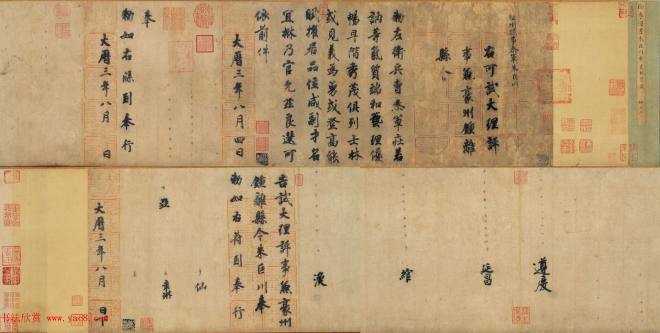 右可試大理評
事兼豪州鍾離
縣令
勑左衛兵曹參軍莊若
訥等氣質端和藝理優
暢早階秀茂俱列士林
或見義為勇或登高能
賦擢居品位咸副才名
宜楙乃官允茲良選可
依前件
大曆三年八月四日
奉
勑如右牒到奉行
大曆三年八月 日
遵慶
延昌
綰
渙
告試大理評事兼豪州
鍾離縣令朱巨川奉
勑如右符到奉行
仙
亞
袁琳
大曆三年八月 日下
书法欣赏 www.yac8.com